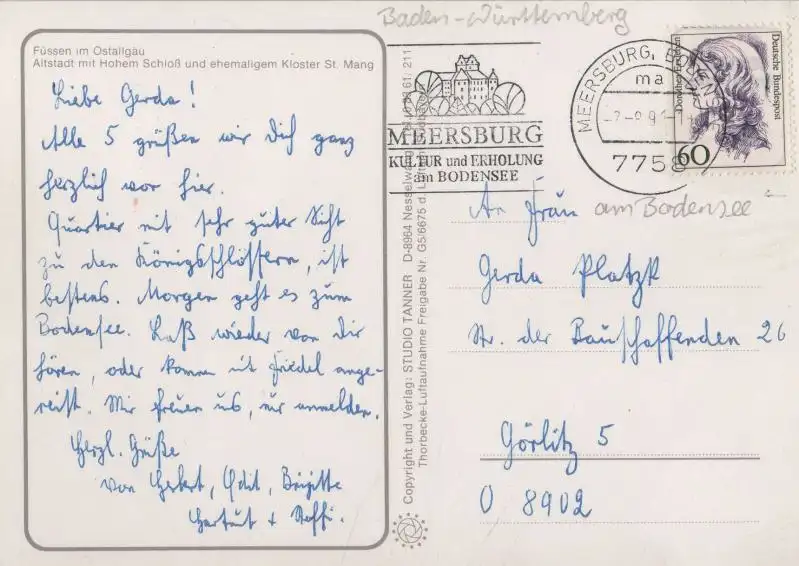 Füssen im Ostallgäu
Altstadt mit Hohem Schloß und ehemaligem Kloster St. Mang
Liebe Gerda!
Alle 5 grüßen wir Dich ganz
herzlich von hier.
Quartier mit sehr guter Sicht
zu den Königsschlössern, ist
bestens. Morgen geht es zum
Bodensee. Laß wieder von Dir
hören, oder komm mit Friedel ange-
reist. Wir freuen uns, nur anmelden.
Herzl. Grüße
von Herbert, Edit, Brigitte
Hartmut + Steffi.
Copyright und Verlag: STUDIO TANNER D-8964 Nesselwang
Thorbecke-Luftaufnahme Freigabe Nr. G5/6675 d.
Baden-Württemberg
MEERSBURG
KULTUR und ERHOLUNG
am BODENSEE
MEERSBURG, BODENSEE
ma
7758
Deutsche Bundespost
60
An Frau am Bodensee
Gerda Platzk
Str. der Bauschaffenden 26
Görlitz 5
O 8902